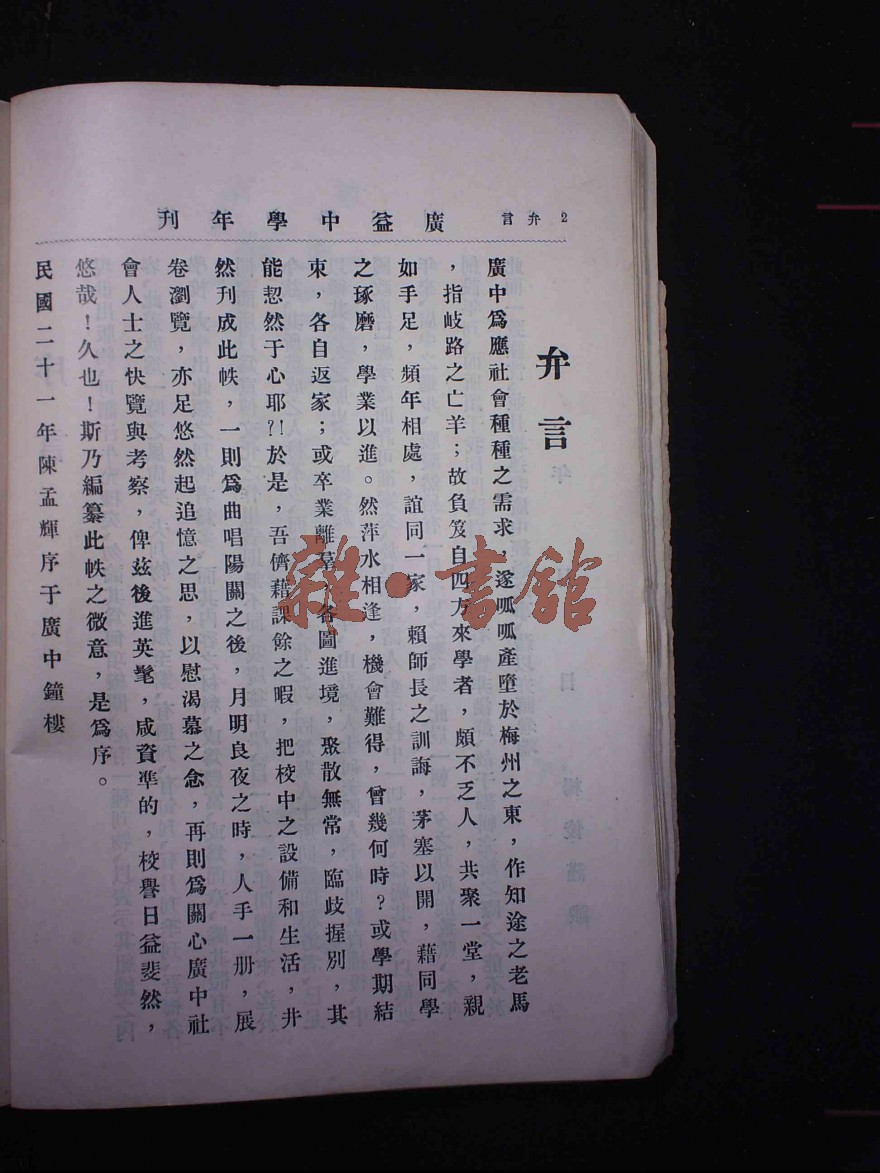 2 弁言
廣益中學年刊
弁言
廣中爲應社會種種之需求，遂呱呱產墮於梅州之東，作知途之老馬
，指岐路之亡羊；故負笈自四方來學者，頗不乏人，共聚一堂，親
如手足，頻年相處，誼同一家，賴師長之訓誨，茅塞以開，藉同學
之琢磨，學業以進。然萍水相逢，機會難得，曾幾何時？或學期結
束，各自返家；或卒業離羣，各圖進境，聚散無常，臨歧握別，其
能恝然于心耶？！於是，吾儕藉課餘之暇，把校中之設備和生活，井
然刊成此帙，一則爲曲唱陽關之後，月明良夜之時，人手一册，展
卷瀏覽，亦足悠然起追憶之思，以慰渴慕之念，再則爲關心廣中社
會人士之快覽與考察，俾兹後進英髦，咸資準的，校譽日益斐然，
悠哉！久也！斯乃編纂此帙之微意，是爲序。
民國二十一年陳孟輝序于廣中鐘樓
雜·書館